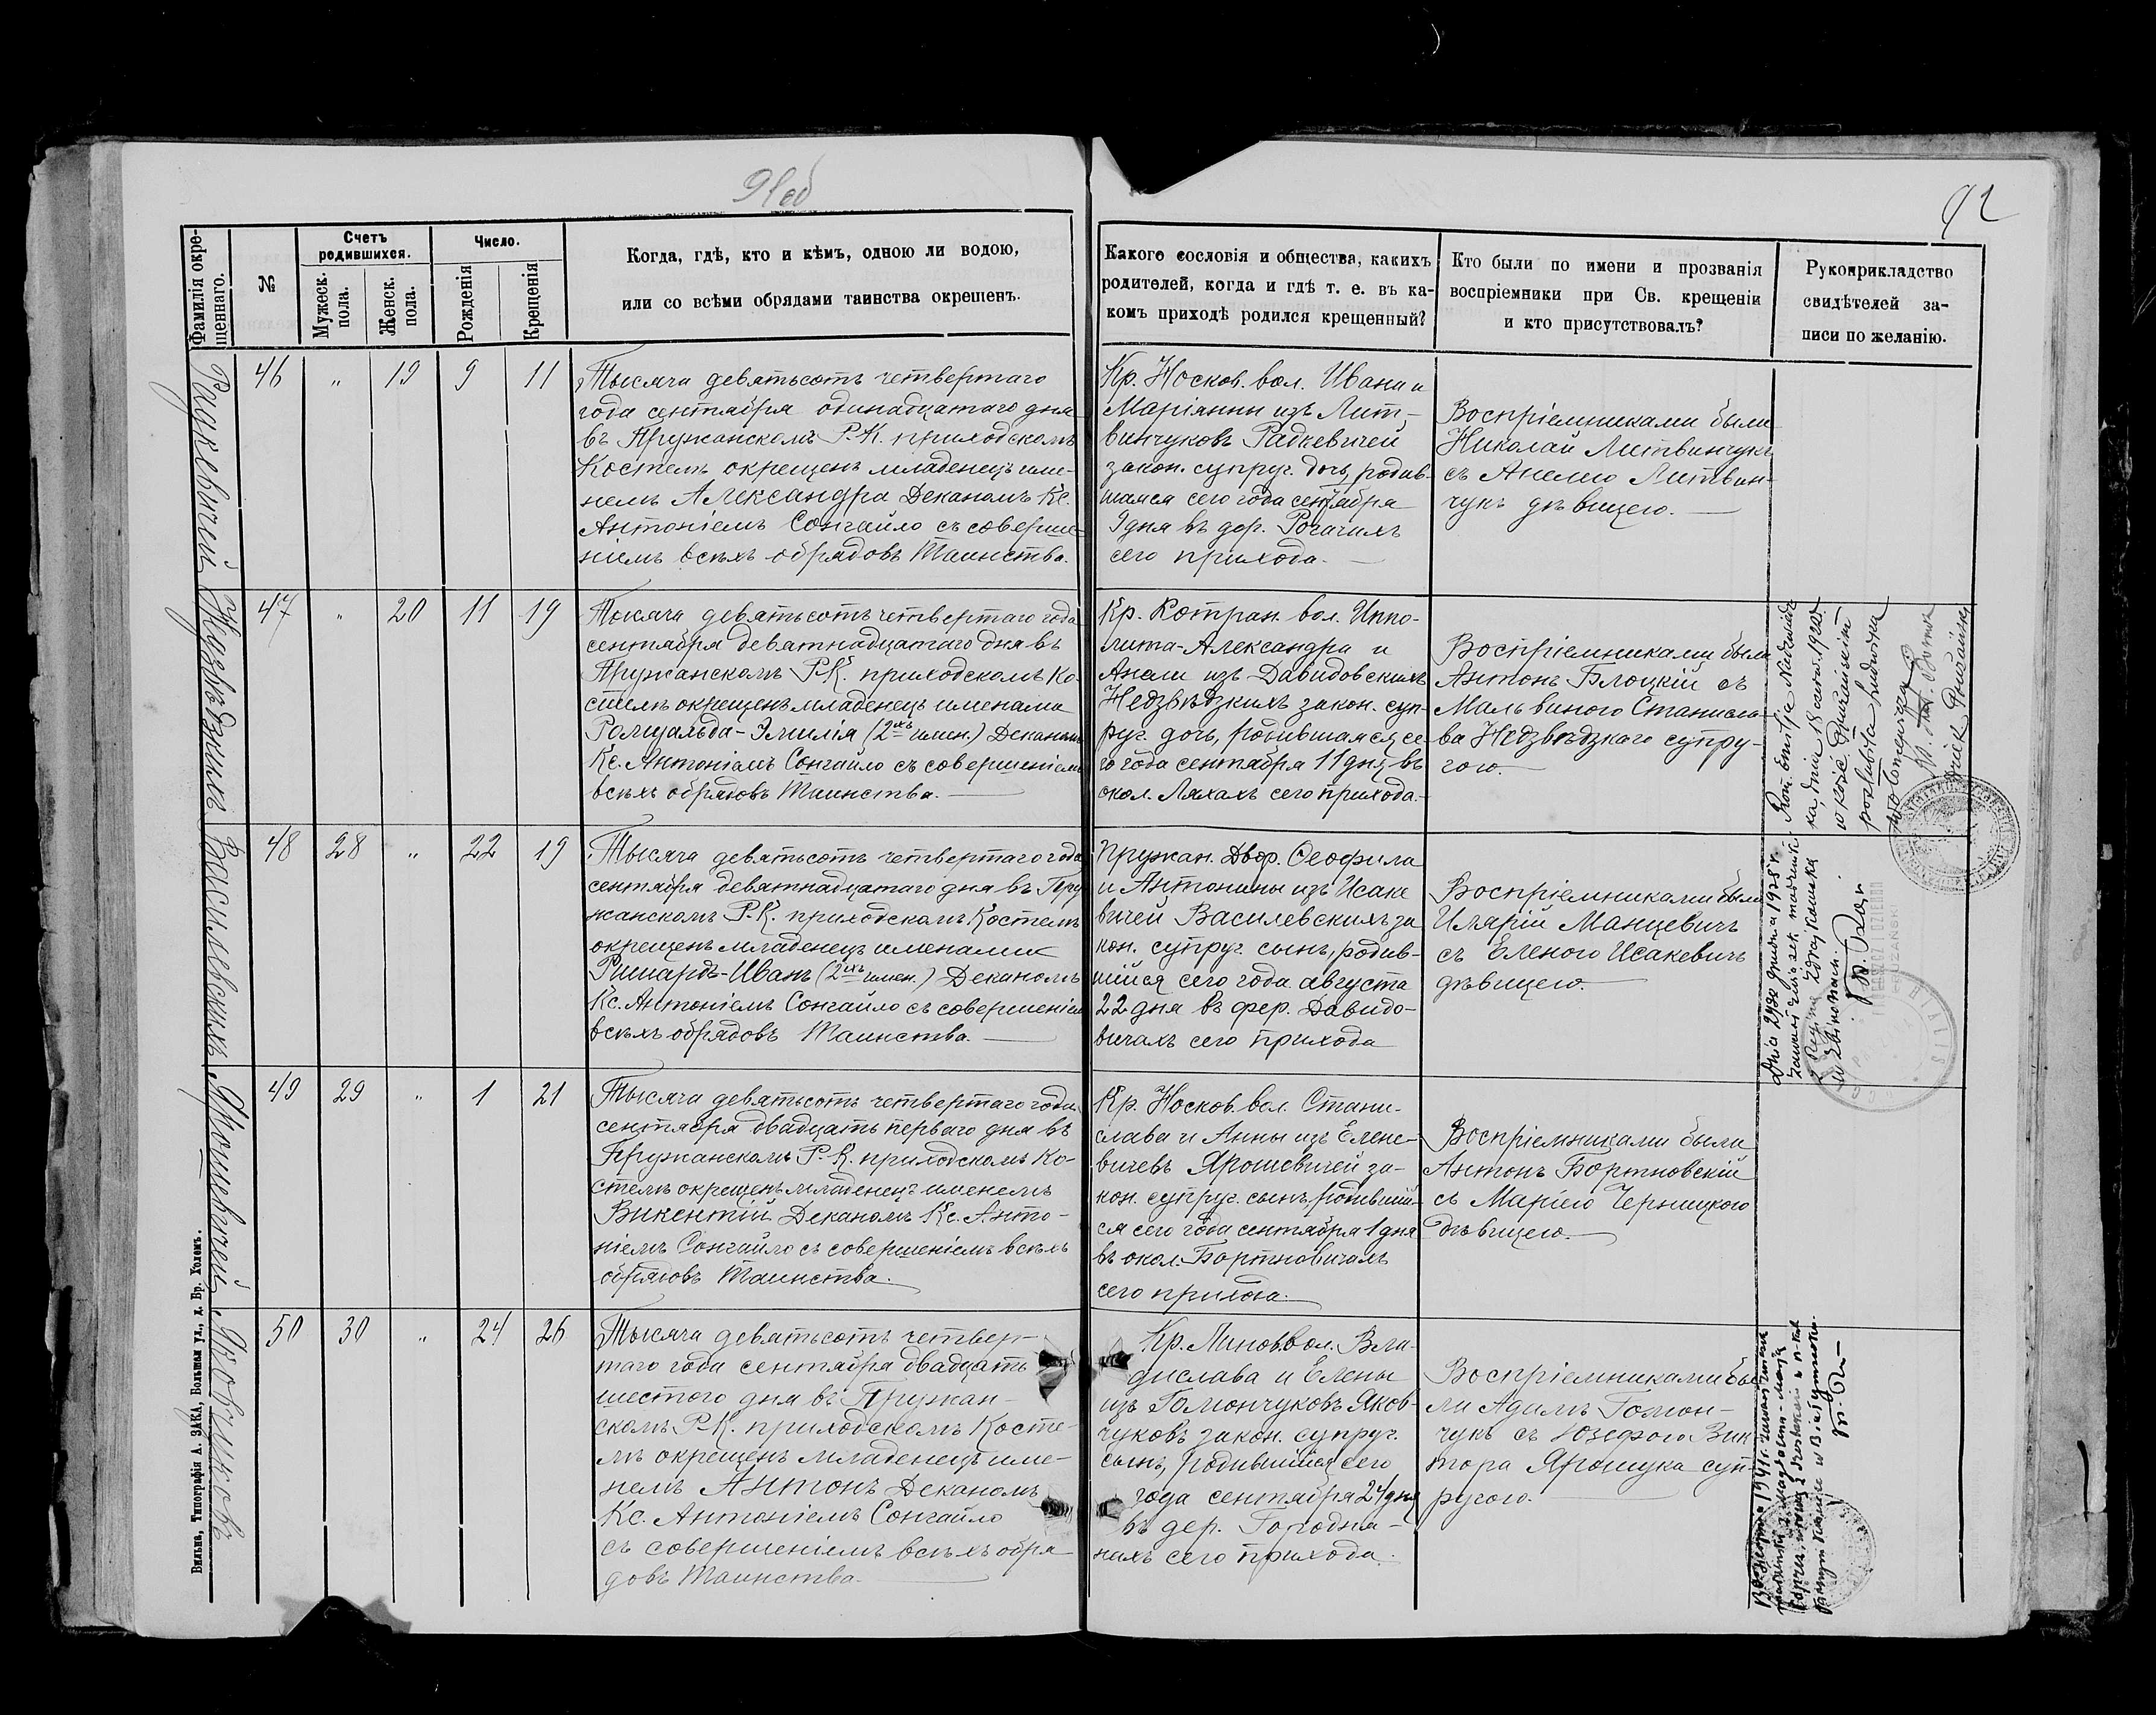 91об
92
Фамилія окре-
щеннаго.
№
Счетъ
родившихся.
Мужеск.
пола.
Женск.
пола.
Число.
Рожденія
Крещенія
Когда, гдѣ, кто и кѣмъ, одною ли водою,
или со всѣми обрядами таинства окрещенъ.
Какого сословія и общества, какихъ
родителей, когда и гдѣ т. е. въ ка-
комъ приходѣ родился крещенный?
Кто были по имени и прозванія
воспріемники при Св. крещеніи
и кто присутствовалъ?
Рукоприкладство
свидѣтелей за-
писи по желанію.
Радкевичей
46 " 19 9 11
Тысяча девятьсотъ четвертаго
года сентября одинадцатаго дня
въ Пружанскомъ Р.-К. приходскомъ
Костелѣ окрещенъ младенецъ име-
немъ Александра Деканомъ Кс.
Антоніемъ Сонгайло съ соверше-
ніемъ всѣхъ обрядовъ Таинства.
Кр. Носков. вол. Ивана и
Маріянны изъ Лит-
винчуковъ Радкевичей
закон. супруг. дочь, родив-
шаяся сего года сентября
9 дня въ дер. Рогачахъ
сего прихода.
Воспріемниками были
Николай Литвинчукъ
съ Анелію Литвин-
чукъ дѣвицею.
Недзвѣдзкихъ
47 " 20 11 19
Тысяча девятьсотъ четвертаго года
сентября девятнадцатаго дня въ
Пружанскомъ Р.-К. приходскомъ Ко-
стелѣ окрещенъ младенецъ именами
Ромуальда-Эмилія (2ихъ имен.) Деканомъ
Кс. Антоніемъ Сонгайло съ совершеніемъ
всѣхъ обрядовъ Таинства.
Кр. Котран. вол. Иппо-
лита-Александра и
Анели изъ Давидовскихъ
Недзвѣдзкихъ закон. суп-
руг. дочь, родившаяся се-
го года сентября 11 дня въ
окол. Ляхахъ сего прихода.
Воспріемниками были
Антонъ Блоцкій съ
Мальвиною Станисла-
ва Недзвѣдзкаго супру-
гою.
Василевскихъ
48 28 " 22 19
Тысяча девятьсотъ четвертаго года
сентября девятнадцатаго дня въ Пру-
жанскомъ Р.-К. приходскомъ Костелѣ
окрещенъ младенецъ именами
Ришардъ-Иванъ (2ихъ имен.) Деканомъ
Кс. Антоніемъ Сонгайло съ совершеніемъ
всѣхъ обрядовъ Таинства.
Пружан. Двор. Ѳеофила
и Антонины изъ Исаке
вичей Василевскихъ за
кон. супруг. сынъ, родив-
шійся сего года августа
22 дня въ фер. Давидо-
вичахъ сего прихода
Воспріемниками были
Иларій Манцевичъ
съ Еленою Исакевичъ
дѣвицею.
Ярошевичей
49 29 " 1 21
Тысяча девятьсотъ четвертаго года
сентября двадцать перваго дня въ
Пружанскомъ Р.-К. приходскомъ Ко-
стелѣ окрещенъ младенецъ именемъ
Викентій Деканомъ Кс. Анто-
ніемъ Сонгайло съ совершеніемъ всѣхъ
обрядовъ Таинства.
Кр. Носков. вол. Стани-
слава и Анны изъ Елене-
вичевъ Ярошевичей за-
кон. супруг. сынъ, родившій-
ся сего года сентября 1 дня
въ окол. Бортновичахъ
сего прихода.
Воспріемниками были
Антонъ Бортновскій
съ Марію Черницкого
дѣвицею.
Яковчуковъ
50 30 " 24 26
Тысяча девятьсотъ четвер-
таго года сентября двадцать
шестого дня въ Пружан-
скомъ Р.-К. приходскомъ Косте-
лѣ окрещенъ младенецъ име-
немъ Антонъ Деканомъ
Кс. Антоніемъ Сонгайло
съ совершеніемъ всѣхъ обря
довъ Таинства.
Кр. Линов. вол. Вла-
дислава и Елены
изъ Гомончуковъ Яков-
чуковъ закон. супруг.
сынъ, родившійся сего
года сентября 24 дня
въ дер. Городня-
нахъ сего прихода.
Воспріемниками бы
ли Адамъ Гомон-
чукъ съ Юзефою Вик
тора Ярошука суп-
ругою.
Вильна, Типографія А. ЗАКА, Большая ул., д. Бр. Холемъ.